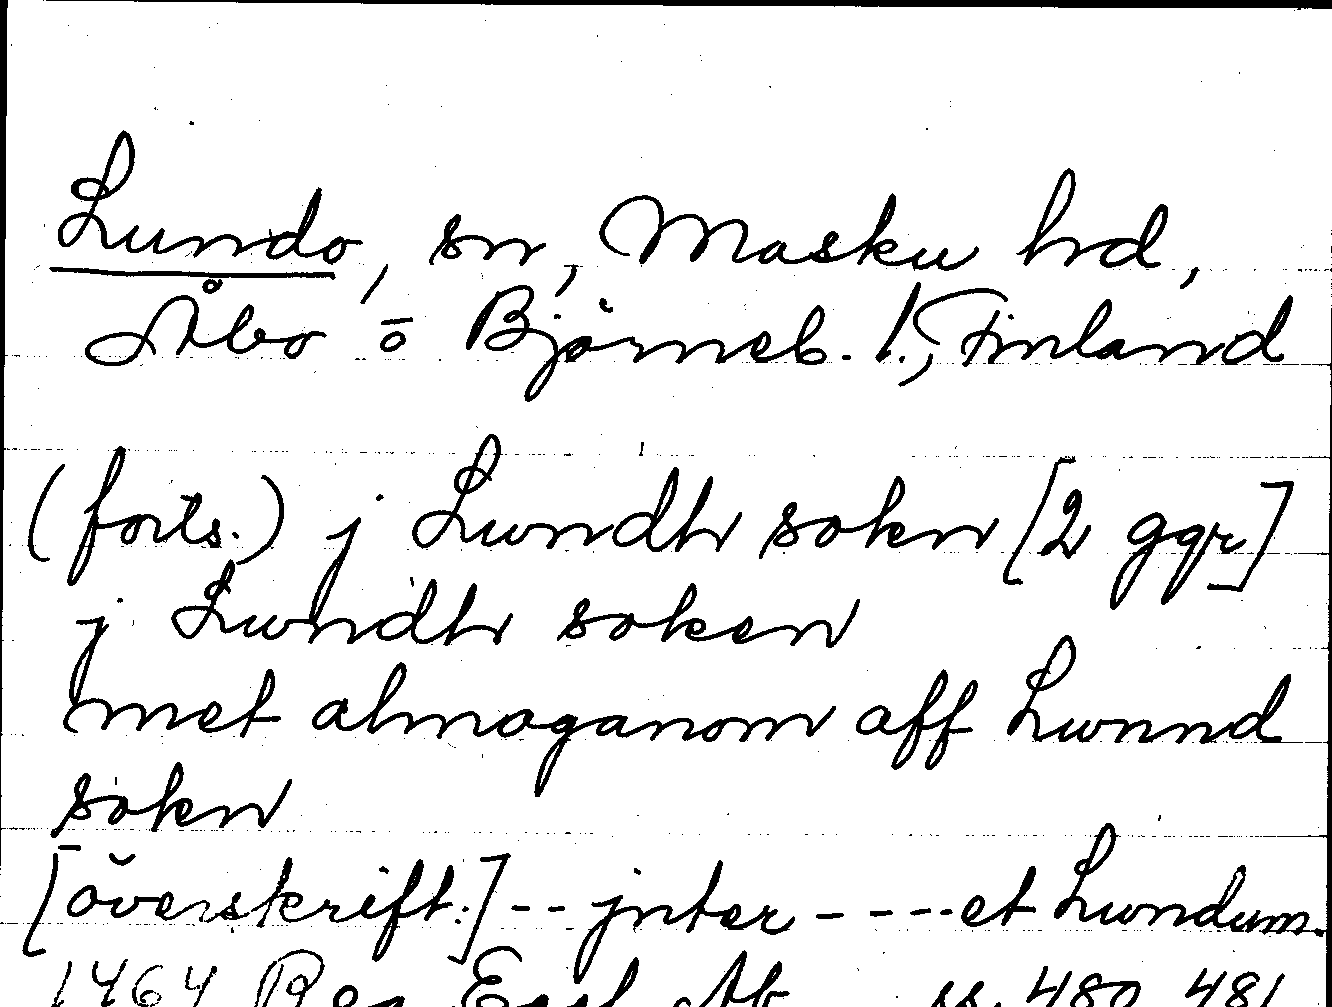 Lundo, sn, Masku hd,
Åbo o Björneb. l., Finland
(forts.) j Lundh sokn [2 ggr]
j Lundh soken
met almoganom aff Lunnd
sokn
[överskrift:] -- jnter ---- et Lundum.
1464 Reg Eccl Ab ss. 480, 481